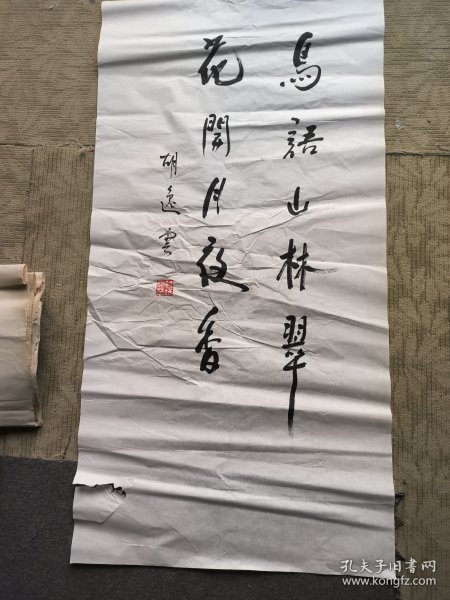 鳥語山林翠
花開月夜香
胡逸雲
孔夫子旧书网
www.kongfz.com